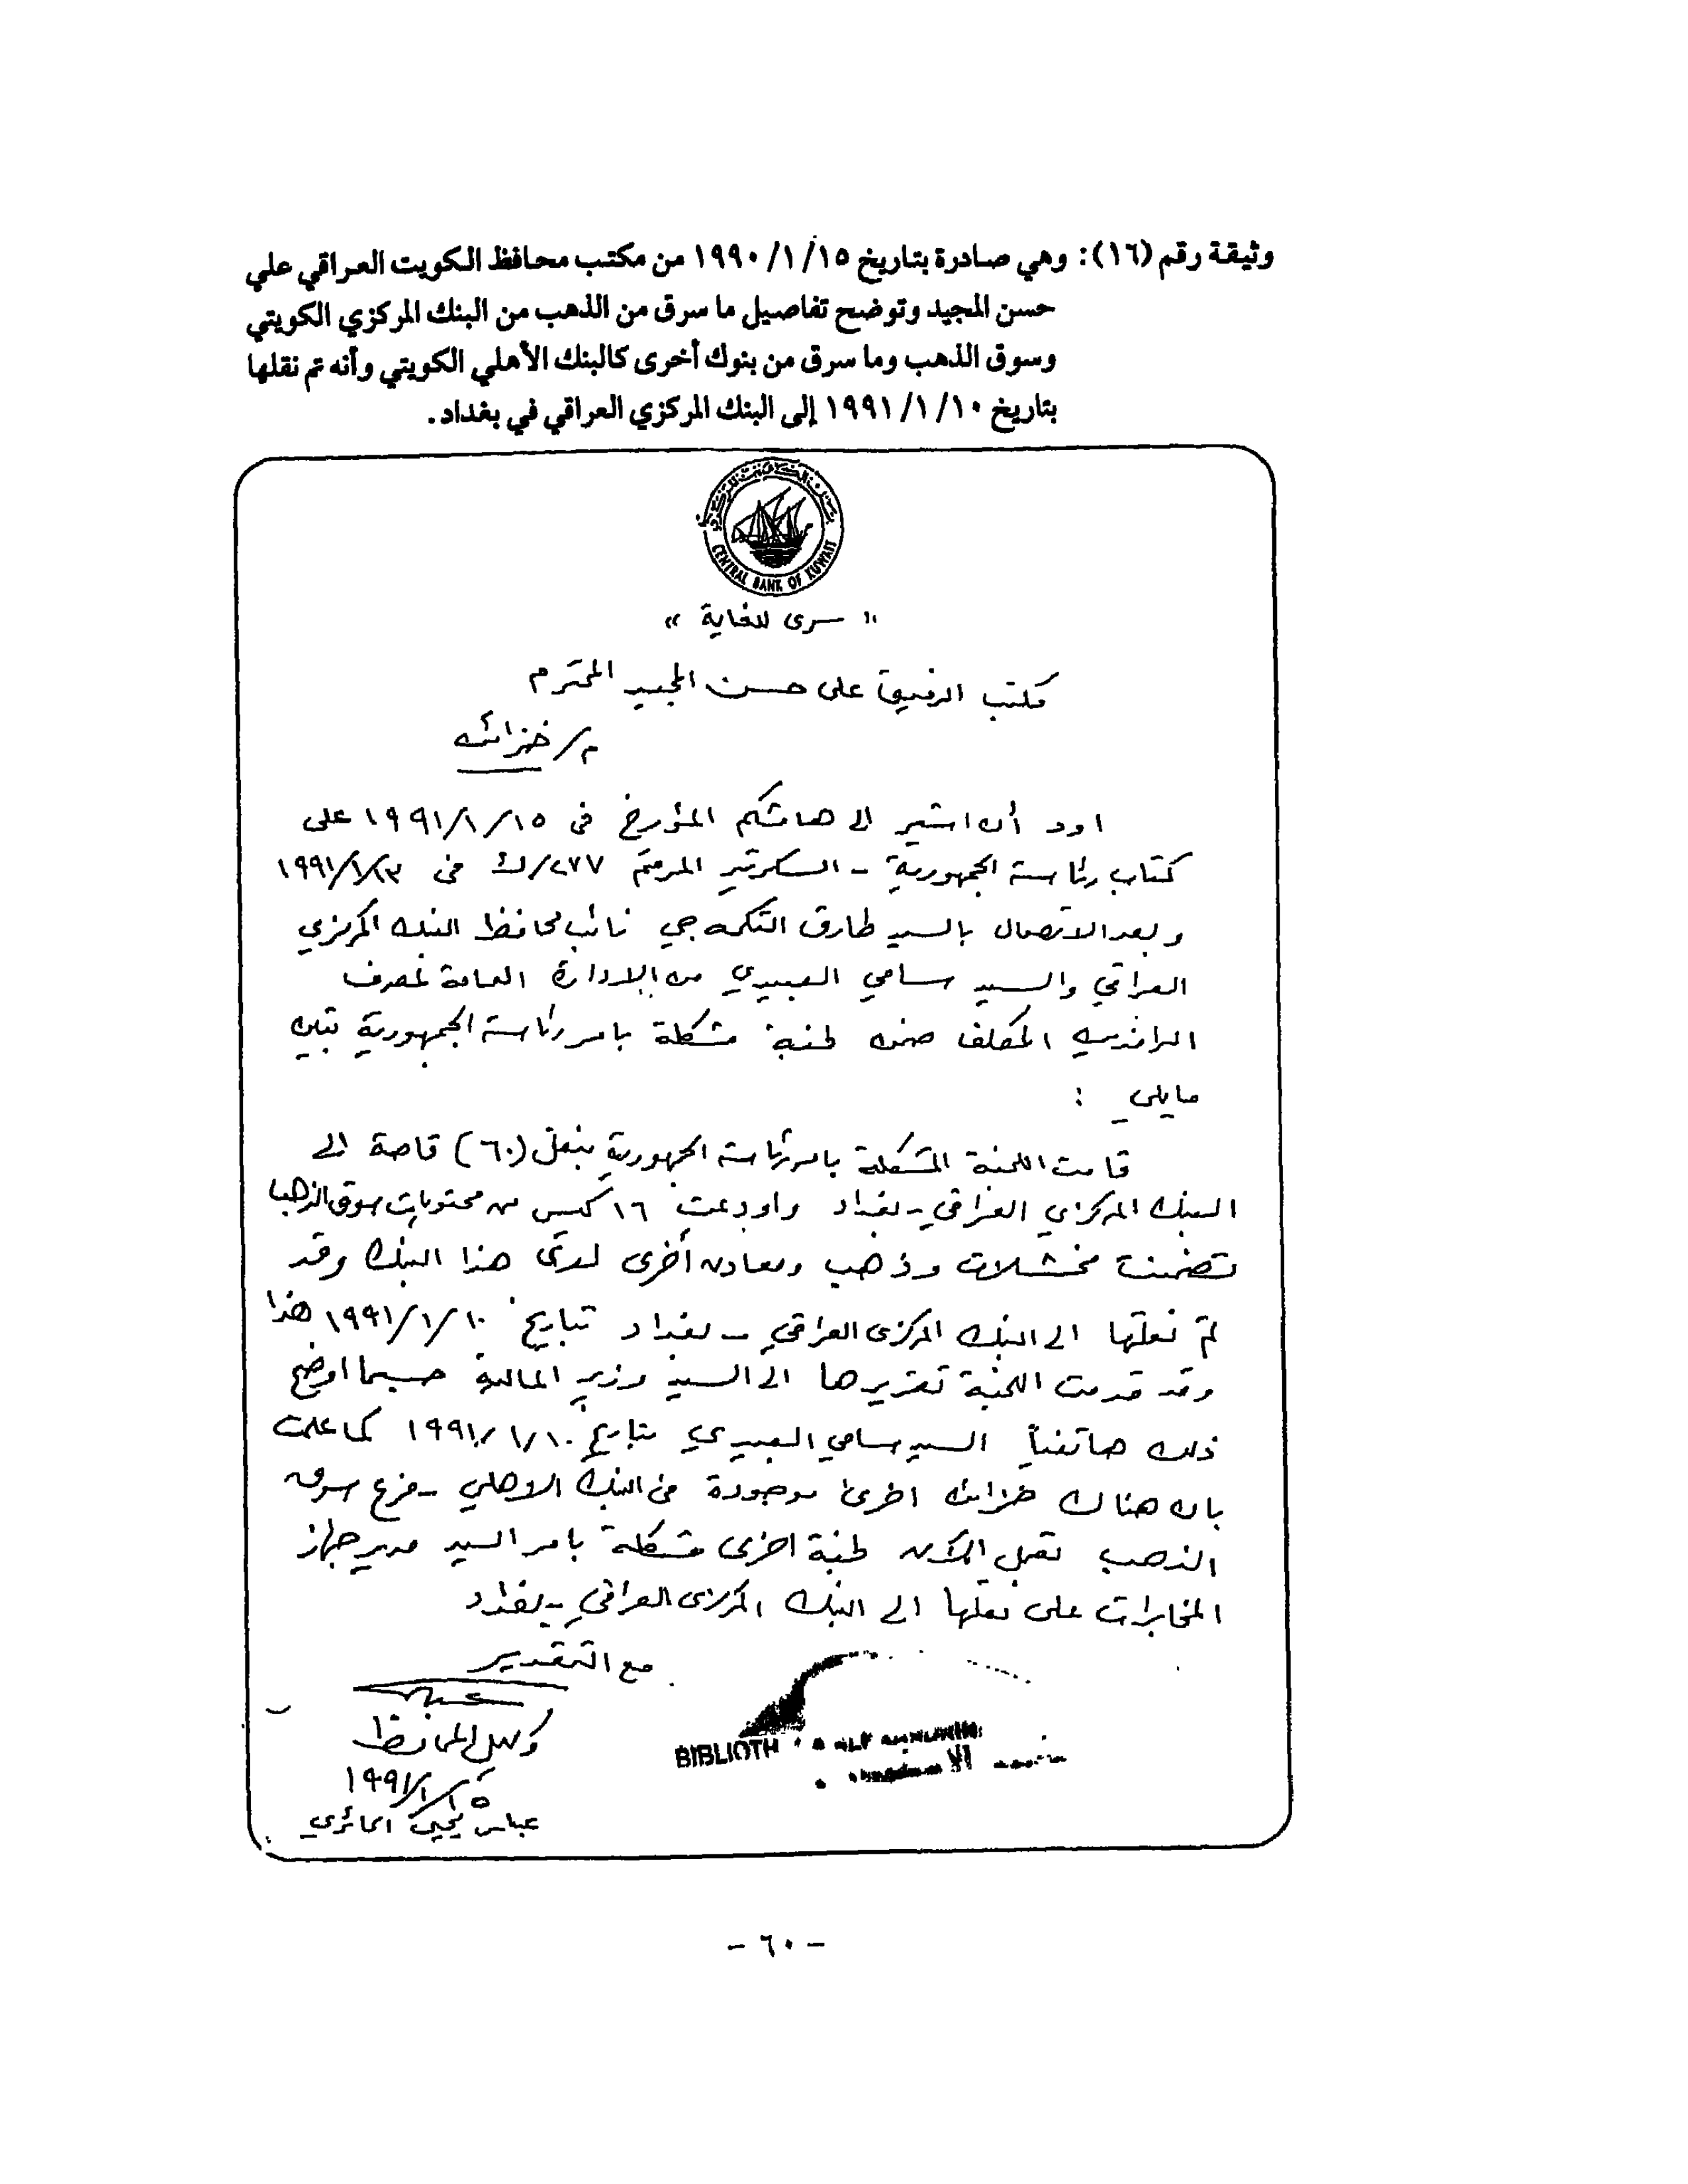 وثيقة رقم (١٦): وهي صادرة بتاريخ ١٩٩٠/١/١٥ من مكتب محافظ الكويت العراقي علي
حسن المجيد وتوضح تفاصيل ما سرق من الذهب من البنك المركزي الكويتي
وسوق الذهب وما سرق من بنوك أخرى كالبنك الأهلي الكويتي وأنه تم نقلها
بتاريخ ١٩٩١/١/١٠ إلى البنك المركزي العراقي في بغداد.
CENTRAL BANK OF KUWAIT
" سرى للغاية "
مكتب الرفيق على حسن المجيد المحترم
م/ خزائن
اود أن اشير الى هامشكم المؤرخ في ١٩٩١/١/١٥ على
كتاب رئاسة الجمهورية - السكرتير المرقم ٢٧٧/ك في
وبعد الاتصال بالسيد طارق التكمه جي نائب محافظ البنك المركزي
العراقي والسيد سامي العبيدي من الادارة العامة لمصرف
الرافدين المكلف ضمن لجنة مشكلة بامر رئاسة الجمهورية تبين
مايلي :
قامت اللجنة المشكلة بامر رئاسة الجمهورية بنقل (٦٠) قاصة الى
البنك المركزي العراقي - بغداد واودعت ١٦ كيس من محتويات سوق الذهب
تضمنت مخشلات وذهب ومعادن أخرى لدى هذا البنك وقد
تم نقلها الى البنك المركزى العراقي - بغداد بتاريخ ١٩٩١/١/١٠ هذا
وقد قدمت اللجنة تقريرها الى السيد وزير المالية حسبما اوضح
ذلك هاتفياً السيد سامي العبيدي بتاريخ ١٩٩١/١/١٠ كما علمت
بان هناك خزائن اخرى موجودة في البنك الاهلي - فرع سوق
الذهب تعمل الآن لجنة اخرى مشكلة بامر السيد مدير جهاز
المخابرات على نقلها الى البنك المركزى العراقي - بغداد
مع التقدير
وكيل المحافظ
١٩٩١/١/١٥
عباس يحيى الحائري
- ٦٠ -